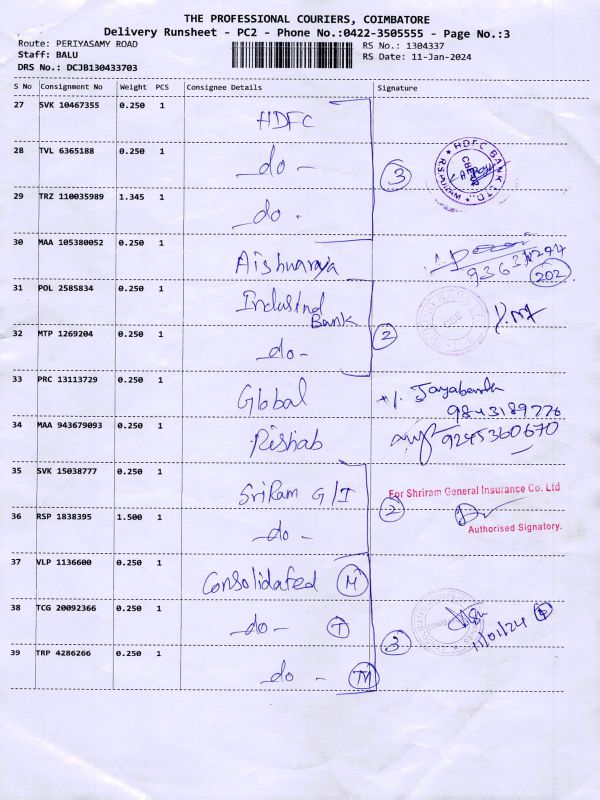 THE PROFESSIONAL COURIERS, COIMBATORE
Delivery Runsheet - PC2 - Phone No.:0422-3505555 - Page No.:3
Route: PERIYASAMY ROAD RS No.: 1304337
Staff: BALU RS Date: 11-Jan-2024
DRS No.: DCJB130433703
S No Consignment No Weight PCS Consignee Details Signature
27 SVK 10467355 0.250 1 HDFC
28 TVL 6365188 0.250 1 -do- 3
HDFC BANK LTD.,
R.S.PURAM
29 TRZ 110035989 1.345 1 -do-
30 MAA 105380052 0.250 1 Aishwarya
202
31 POL 2585834 0.250 1 Indusind Bank
32 MTP 1269204 0.250 1 -do- 2
33 PRC 13113729 0.250 1 Global
9843189776
34 MAA 943679093 0.250 1 Rishab 9245360670
35 SVK 15038777 0.250 1 Sriram G/I
For Shriram General Insurance Co. Ltd
2
Authorised Signatory.
36 RSP 1838395 1.500 1 -do-
37 VLP 1136600 0.250 1 Consolidated M
38 TCG 20092366 0.250 1 -do- T 3
11/01/24
39 TRP 4286266 0.250 1 -do- TM